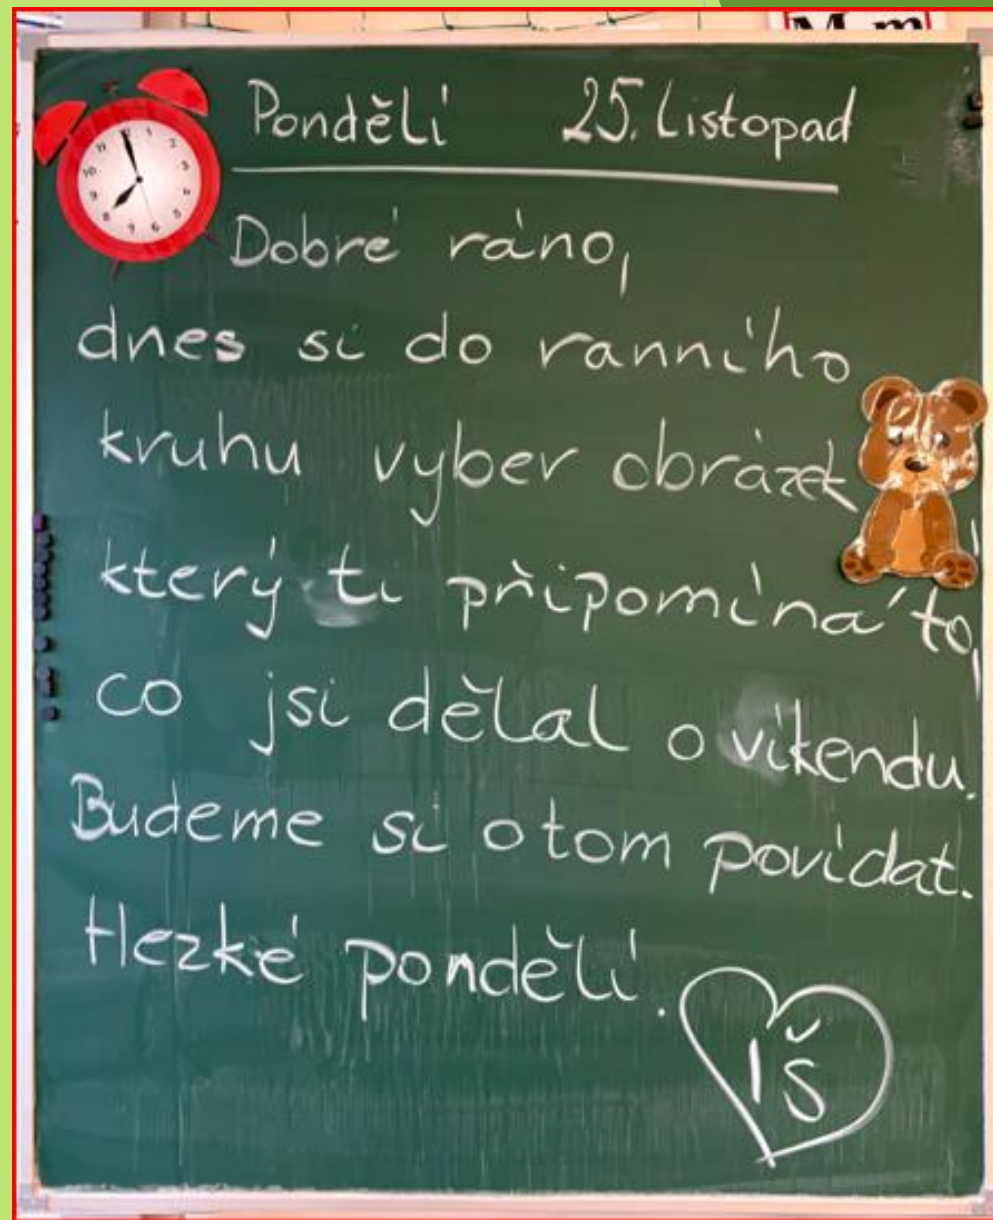 M m
Pondělí 25. listopad
Dobré ráno,
dnes si do ranního
kruhu vyber obrázek,
který ti připomíná to,
co jsi dělal o víkendu.
Budeme si o tom povídat.
Hezké pondělí.
IŠ